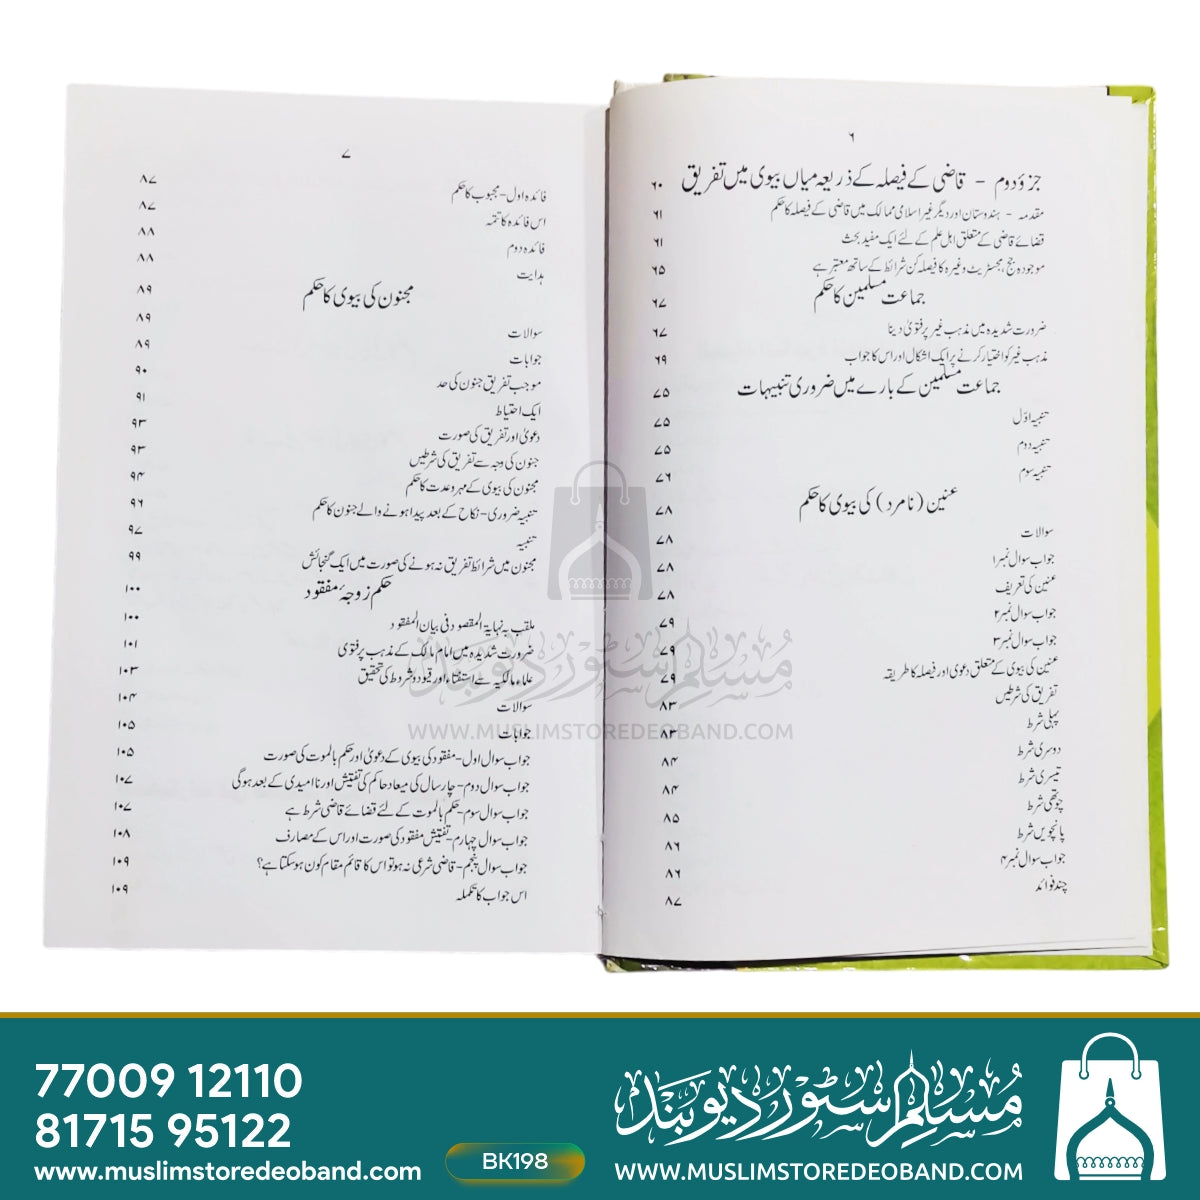 ۶
جزؤ دوم - قاضی کے فیصلہ کے ذریعہ میاں بیوی میں تفریق ۶۰
مقدمہ - ہندوستان اور دیگر غیر اسلامی ممالک میں قاضی کے فیصلہ کا حکم ۶۱
قضائے قاضی کے متعلق اہل علم کے لئے ایک مفید بحث ۶۱
موجودہ جج، مجسٹریٹ وغیرہ کا فیصلہ کن شرائط کے ساتھ معتبر ہے ۶۵
جماعت مسلمین کا حکم ۶۷
ضرورت شدیدہ میں مذہب غیر پر فتویٰ دینا ۶۷
مذہب غیر کو اختیار کرنے پر ایک اشکال اور اس کا جواب ۶۹
جماعت مسلمین کے بارے میں ضروری تنبیہات ۷۵
تنبیہ اوّل ۷۵
تنبیہ دوم ۷۵
تنبیہ سوم ۷۶
عنین (نامرد) کی بیوی کا حکم ۷۸
سوالات ۷۸
جواب سوال نمبر ۱ ۷۸
عنین کی تعریف ۷۸
جواب سوال نمبر ۲ ۷۹
جواب سوال نمبر ۳ ۷۹
عنین کی بیوی کے متعلق دعویٰ اور فیصلہ کا طریقہ ۷۹
تفریق کی شرطیں ۸۳
پہلی شرط ۸۳
دوسری شرط ۸۴
تیسری شرط ۸۴
چوتھی شرط ۸۵
پانچویں شرط ۸۶
جواب سوال نمبر ۴ ۸۶
چند فوائد ۸۷
۷
فائدہ اول - مجبوب کا حکم ۸۷
اس فائدہ کا تتمہ ۸۷
فائدہ دوم ۸۸
ہدایت ۸۸
مجنون کی بیوی کا حکم ۸۹
سوالات ۸۹
جوابات ۸۹
موجب تفریق جنون کی حد ۹۰
ایک احتیاط ۹۱
دعویٰ اور تفریق کی صورت ۹۳
جنون کی وجہ سے تفریق کی شرطیں ۹۳
مجنون کی بیوی کے مہر و عدت کا حکم ۹۴
تنبیہ ضروری - نکاح کے بعد پیدا ہونے والے جنون کا حکم ۹۶
تنبیہ ۹۷
مجنون میں شرائط تفریق نہ ہونے کی صورت میں ایک گنجائش ۹۹
حکم زوجۂ مفقود ۱۰۰
ملقب بہ نہایۃ المقصود فی بیان المفقود ۱۰۰
ضرورت شدیدہ میں امام مالک کے مذہب پر فتویٰ ۱۰۱
علماء مالکیہ سے استفتاء اور قیود و شروط کی تحقیق ۱۰۳
سوالات ۱۰۴
جوابات ۱۰۵
جواب سوال اول - مفقود کی بیوی کے دعویٰ اور حکم بالموت کی صورت ۱۰۵
جواب سوال دوم - چار سال کی میعاد حاکم کی تفتیش اور ناامیدی کے بعد ہوگی ۱۰۷
جواب سوال سوم - حکم بالموت کے لئے قضائے قاضی شرط ہے ۱۰۷
جواب سوال چہارم - تفتیش مفقود کی صورت اور اس کے مصارف ۱۰۸
جواب سوال پنجم - قاضی شرعی نہ ہو تو اس کا قائم مقام کون ہو سکتا ہے؟ ۱۰۹
اس جواب کا تکملہ ۱۰۹
مسلم سٹور دیوبند
WWW.MUSLIMSTOREDEOBAND.COM
77009 12110
81715 95122
www.muslimstoredeoband.com
BK198
مسلم سٹور دیوبند
WWW.MUSLIMSTOREDEOBAND.COM